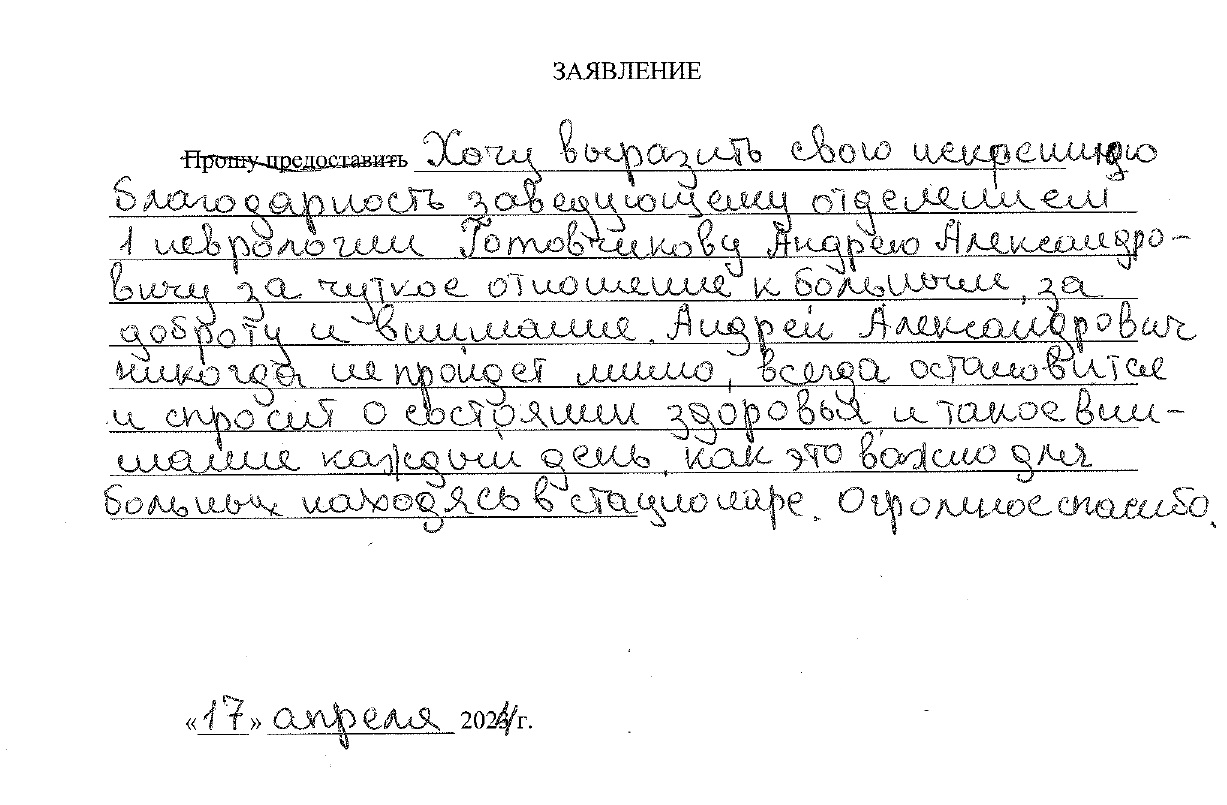 ЗАЯВЛЕНИЕ
Прошу предоставить Хочу выразить свою искреннюю
благодарность заведующему отделением
1 неврологии Готовчикову Андрею Александро-
вичу за чуткое отношение к больным, за
доброту и внимание. Андрей Александрович
никогда не пройдет мимо, всегда остановится
и спросит о состоянии здоровья и такое вни-
мание каждый день, как это важно для
больных находясь в стационаре. Огромное спасибо.
«17» апреля 2024 г.